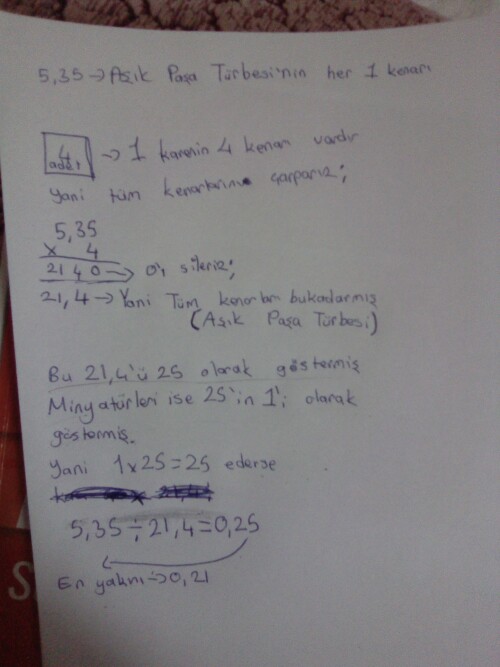 5,35 → Aşık Paşa Türbesi'nin her 1 kenarı
4 adet → 1 karenin 4 kenarı vardır
Yani tüm kenarlarını çarparız;
5,35
x 4
2140 → 0'ı sileriz;
21,4 → Yani Tüm kenarları bukadarmış
(Aşık Paşa Türbesi)
Bu 21,4'ü 25 olarak göstermiş
Minyatürleri ise 25'in 1'i olarak
göstermiş.
Yani 1x25=25 ederse
5,35÷21,4=0,25
En yakını → 0,21